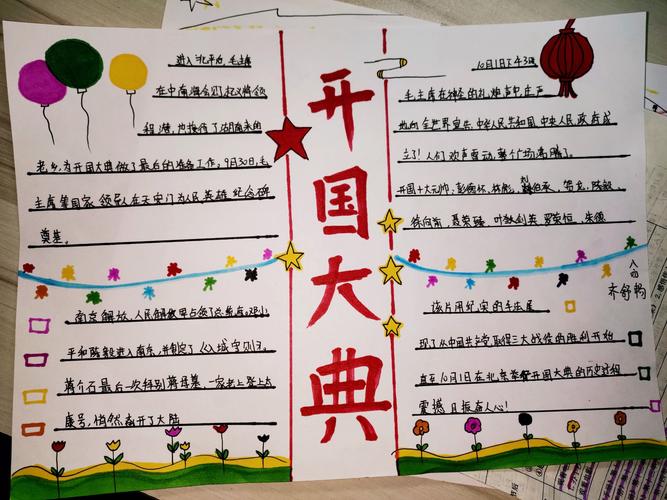 进入北平前,毛主席
在中南海会见了起义将领
程潜,也接待了湖南来的
老乡,为开国大典做了最后的准备工作。9月30日,毛
主席率国家领导人在天安门为人民英雄纪念碑
奠基。
南京解放,人民解放军占领了总统府。邓小
平和陈毅进入南京,并制定了《入城守则》。
蒋介石最后一次拜别蒋母墓,一家老上登上太
康号,悄然离开了大陆
开国大典
10月1日下午3时
毛主席在神圣的礼炮声中,庄严
地向全世界宣告:中华人民共和国,中央人民政府成
立了!人们欢声雷动,整个广场沸腾了。
开国十大元帅:彭德怀、林彪、刘伯承、贺龙、陈毅、
徐向前、聂荣臻、叶剑英、罗荣恒、朱德
入四
齐舒畅
该片用纪实的手法展
现了从中国共产党取得三大战役的胜利开始
直至10月1日在北京举行开国大典的历史过程
震撼且振奋人心!